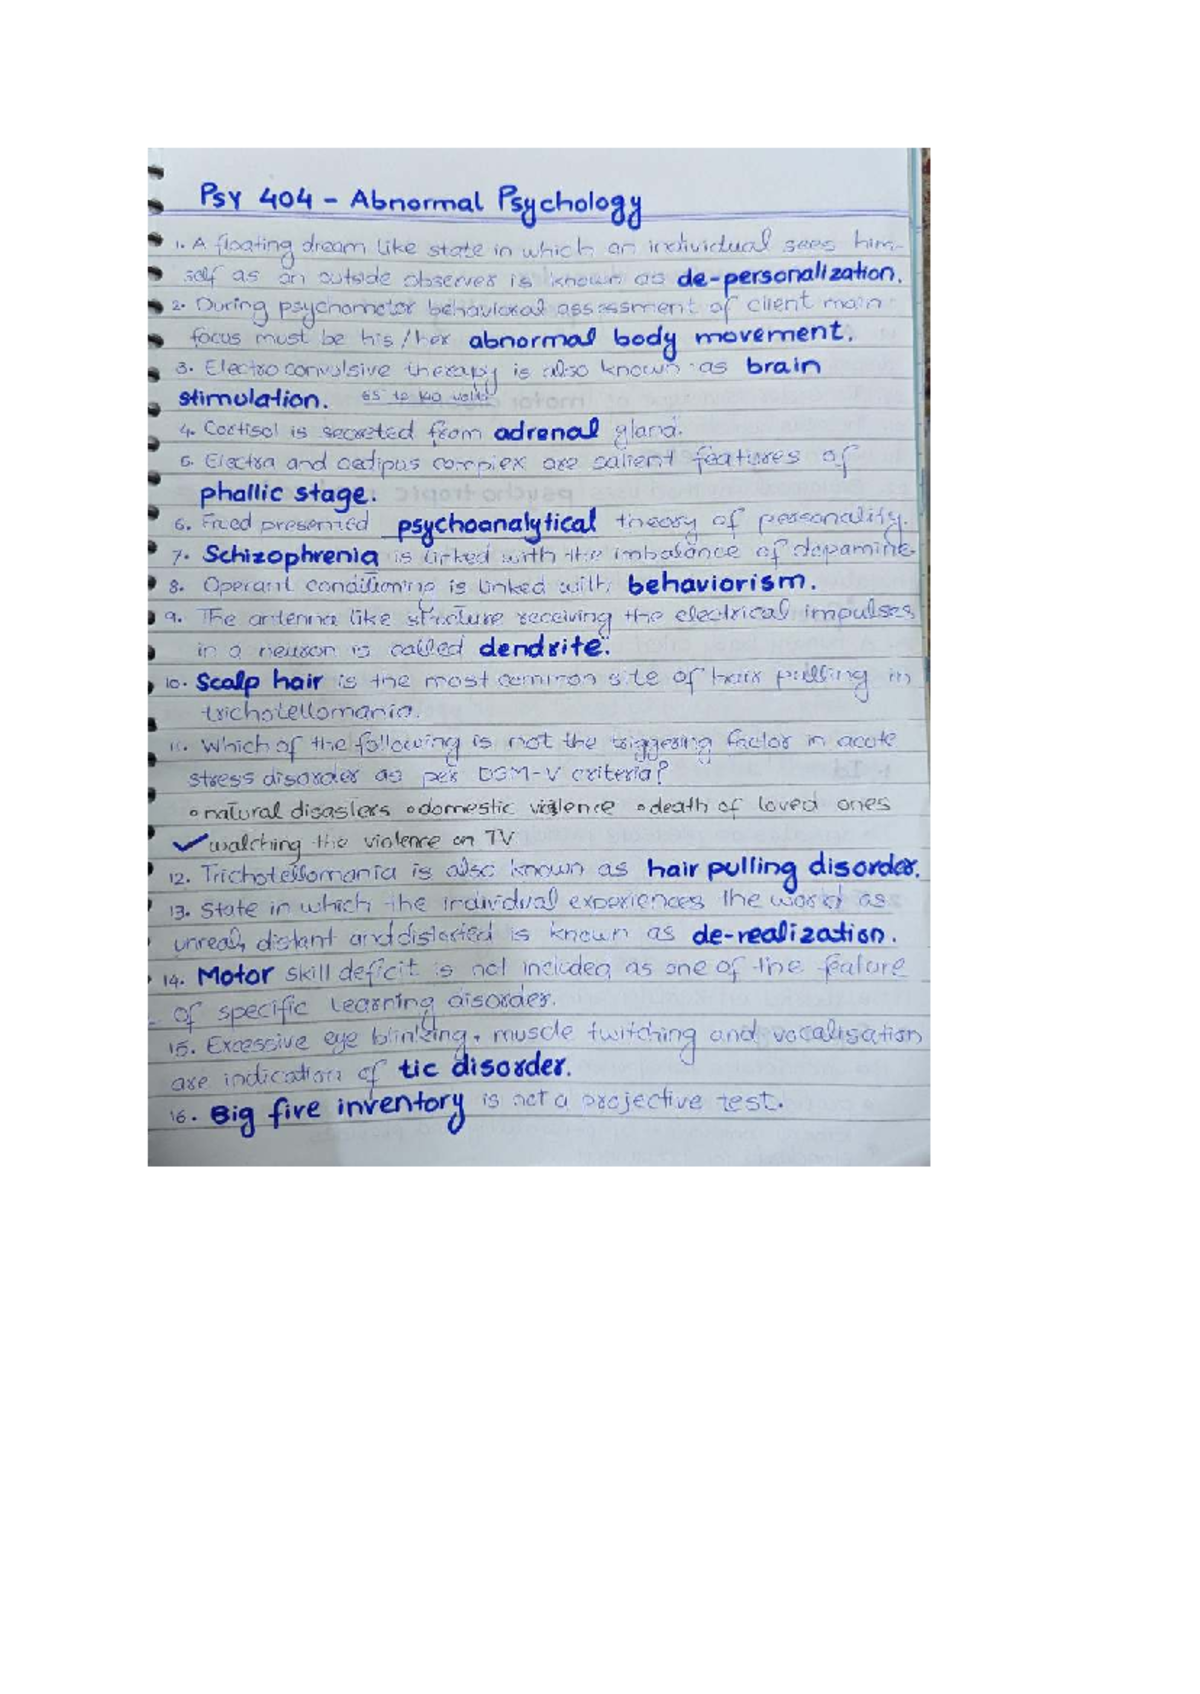 PSY 404 - Abnormal Psychology
1. A floating dream like state in which an individual sees him-
self as an outside observer is known as de-personalization.
2. During psychomotor behavioral assessment of client main
focus must be his/her abnormal body movement.
3. Electro convulsive therapy is also known as brain
stimulation. 65 to 140 volts
4. Cortisol is secreted from adrenal gland.
5. Electra and oedipus complex are salient features of
phallic stage.
6. Fraed presented psychoanalytical theory of personality.
7. Schizophrenia is linked with the imbalance of dopamine.
8. Operant conditioning is linked with behaviorism.
9. The antenna like structure receiving the electrical impulses
in a neuron is called dendrite.
10. Scalp hair is the most common site of hair pulling in
trichotellomania.
11. Which of the following is not the triggering factor in acute
stress disorder as per DSM-V criteria?
◦ natural disasters ◦ domestic violence ◦ death of loved ones
✓ watching the violence on TV
12. Trichotellomania is also known as hair pulling disorder.
13. State in which the individual experiences the world as
unreal, distant and distorted is known as de-realization.
14. Motor skill deficit is not included as one of the feature
of specific learning disorder.
15. Excessive eye blinking, muscle twitching and vocalisation
are indication of tic disorder.
16. Big five inventory is not a projective test.